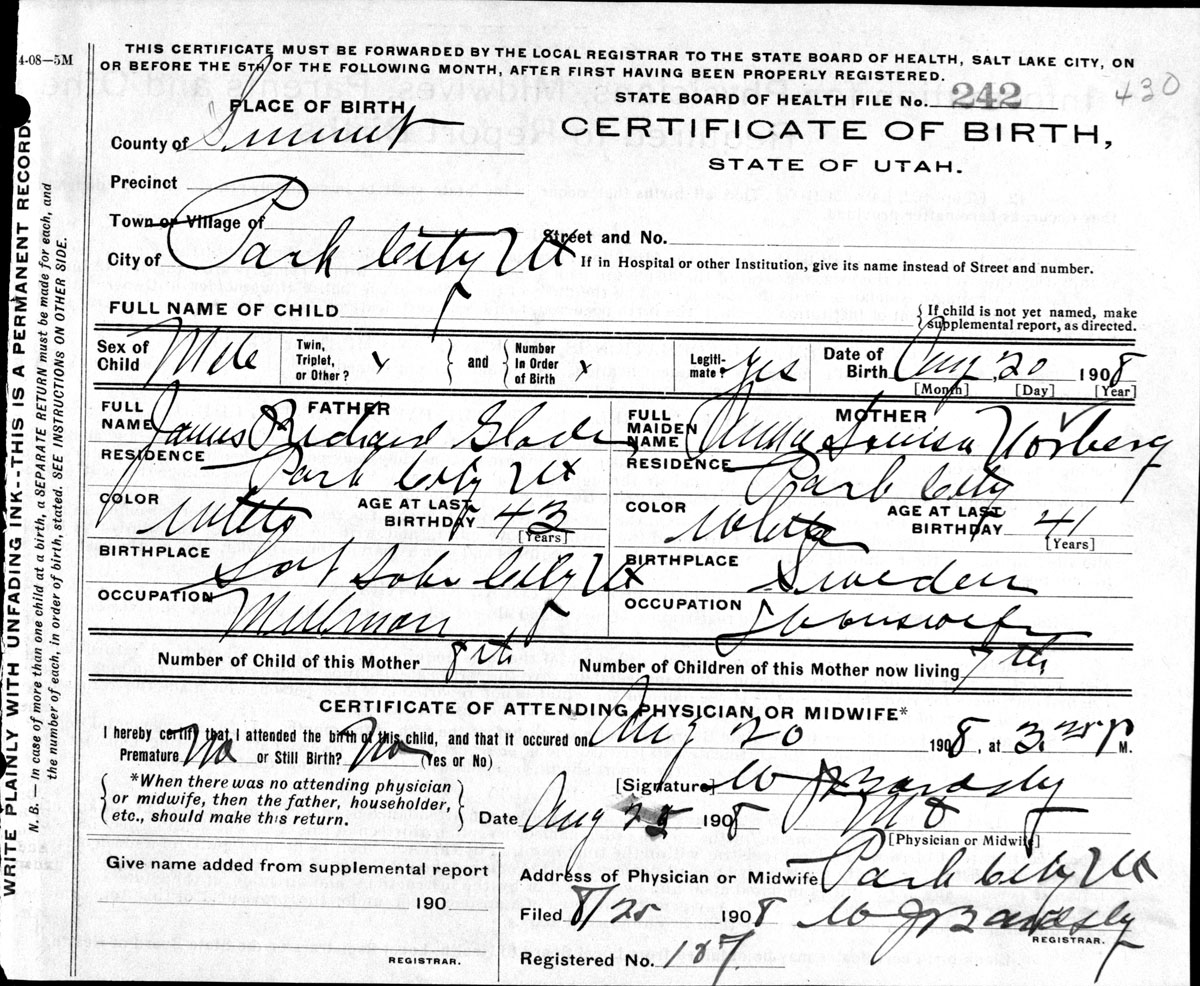 4-08—5M
THIS CERTIFICATE MUST BE FORWARDED BY THE LOCAL REGISTRAR TO THE STATE BOARD OF HEALTH, SALT LAKE CITY, ON
OR BEFORE THE 5TH OF THE FOLLOWING MONTH, AFTER FIRST HAVING BEEN PROPERLY REGISTERED.
430
PLACE OF BIRTH
STATE BOARD OF HEALTH FILE No. 242
County of Summit
CERTIFICATE OF BIRTH,
STATE OF UTAH.
Precinct
Town or Village of
Street and No.
City of Park City Ut
If in Hospital or other Institution, give its name instead of Street and number.
FULL NAME OF CHILD
{ If child is not yet named, make
supplemental report, as directed.
Sex of Child Male
Twin, Triplet, or Other? x } and { Number In Order of Birth x
Legitimate? Yes
Date of Birth Aug, 20 1908
[Month] [Day] [Year]
FATHER
FULL NAME James Richard Glade
RESIDENCE Park City Ut
COLOR White AGE AT LAST BIRTHDAY 43
[Years]
BIRTHPLACE Salt Lake City Ut
OCCUPATION Millman
MOTHER
FULL MAIDEN NAME Anna Louisa Norberg
RESIDENCE Park City
COLOR White AGE AT LAST BIRTHDAY 41
[Years]
BIRTHPLACE Sweden
OCCUPATION Housewife
Number of Child of this Mother 8th Number of Children of this Mother now living 7th
CERTIFICATE OF ATTENDING PHYSICIAN OR MIDWIFE*
I hereby certify that I attended the birth of this child, and that it occured on Aug 20 1908, at 3.25 P M.
Premature No or Still Birth? No (Yes or No)
{ *When there was no attending physician
or midwife, then the father, householder,
etc., should make this return. }
[Signature] W J Bardsly
Date Aug 25 1908 MD
[Physician or Midwife]
Give name added from supplemental report
190
REGISTRAR.
Address of Physician or Midwife Park City Ut
Filed 8/25 1908 W J Bardsly
REGISTRAR.
Registered No. 127
WRITE PLAINLY WITH UNFADING INK--THIS IS A PERMANENT RECORD.
N. B.—In case of more than one child at a birth, a SEPARATE RETURN must be made for each, and
the number of each, in order of birth, stated. SEE INSTRUCTIONS ON OTHER SIDE.